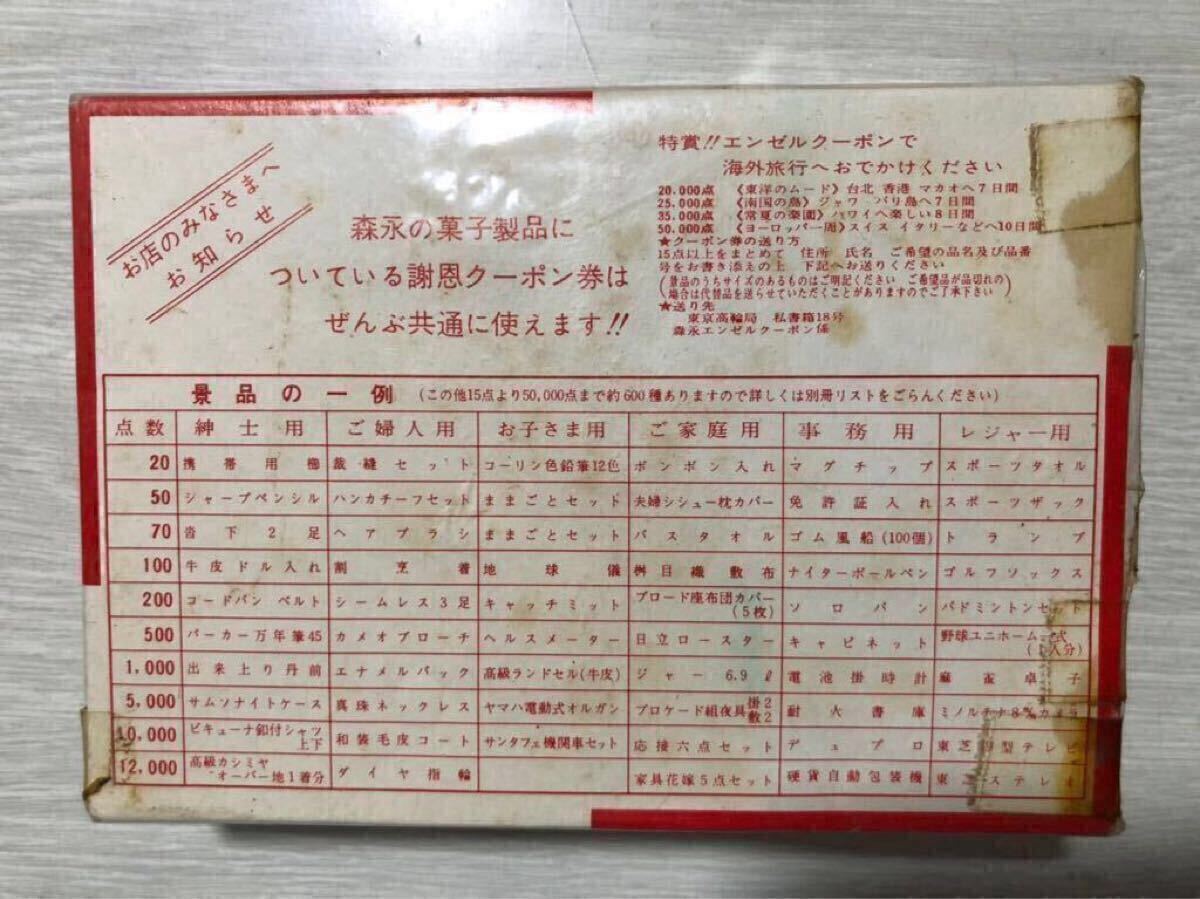 お店のみなさまへ
お知らせ
森永の菓子製品に
ついている謝恩クーポン券は
ぜんぶ共通に使えます!!
特賞!!エンゼルクーポンで
海外旅行へおでかけください
20.000点 《東洋のムード》台北 香港 マカオへ7日間
25.000点 《南国の島》ジャワ バリ島へ7日間
35.000点 《常夏の楽園》ハワイへ楽しい8日間
50.000点 《ヨーロッパ一周》スイス イタリーなどへ10日間
★クーポン券の送り方
15点以上をまとめて 住所 氏名 ご希望の品名及び品番
号をお書き添えの上 下記へお送りください
(景品のうちサイズのあるものはご明記ください ご希望品が品切れの
場合は代替品を送らせていただくことがありますのでご了承下さい)
★送り先
東京高輪局 私書箱18号
森永エンゼルクーポン係
景品の一例 (この他15点より50,000点まで約600種ありますので詳しくは別冊リストをごらんください)
点数 紳士用 ご婦人用 お子さま用 ご家庭用 事務用 レジャー用
20 携帯用櫛 裁縫セット コーリン色鉛筆12色 ボンボン入れ マグチップ スポーツタオル
50 シャープペンシル ハンカチーフセット ままごとセット 夫婦シシュー枕カバー 免許証入れ スポーツザック
70 沓下2足 ヘアブラシ ままごとセット バスタオル ゴム風船(100個) トランプ
100 牛皮ドル入れ 割烹着 地球儀 桝目織敷布 ナイターボールペン ゴルフソックス
200 コードバン ベルト シームレス3足 キャッチミット ブロード座布団カバー(5枚) ソロバン バドミントンセット
500 パーカー万年筆45 カメオブローチ ヘルスメーター 日立ロースター キャビネット 野球ユニホーム一式(1人分)
1,000 出来上り丹前 エナメルバック 高級ランドセル(牛皮) ジャー6.9ℓ 電池掛時計 麻雀卓子
5,000 サムソナイトケース 真珠ネックレス ヤマハ電動式オルガン ブロケード組夜具掛2敷2 耐火書庫 ミノルチナ8%カメラ
10,000 ビキューナ釦付シャツ上下 和装毛皮コート サンタフェ機関車セット 応接六点セット デュプロ 東芝型テレビ
12,000 高級カシミヤオーバー地1着分 ダイヤ指輪 家具花嫁5点セット 硬貨自動包装機 東芝ステレオ